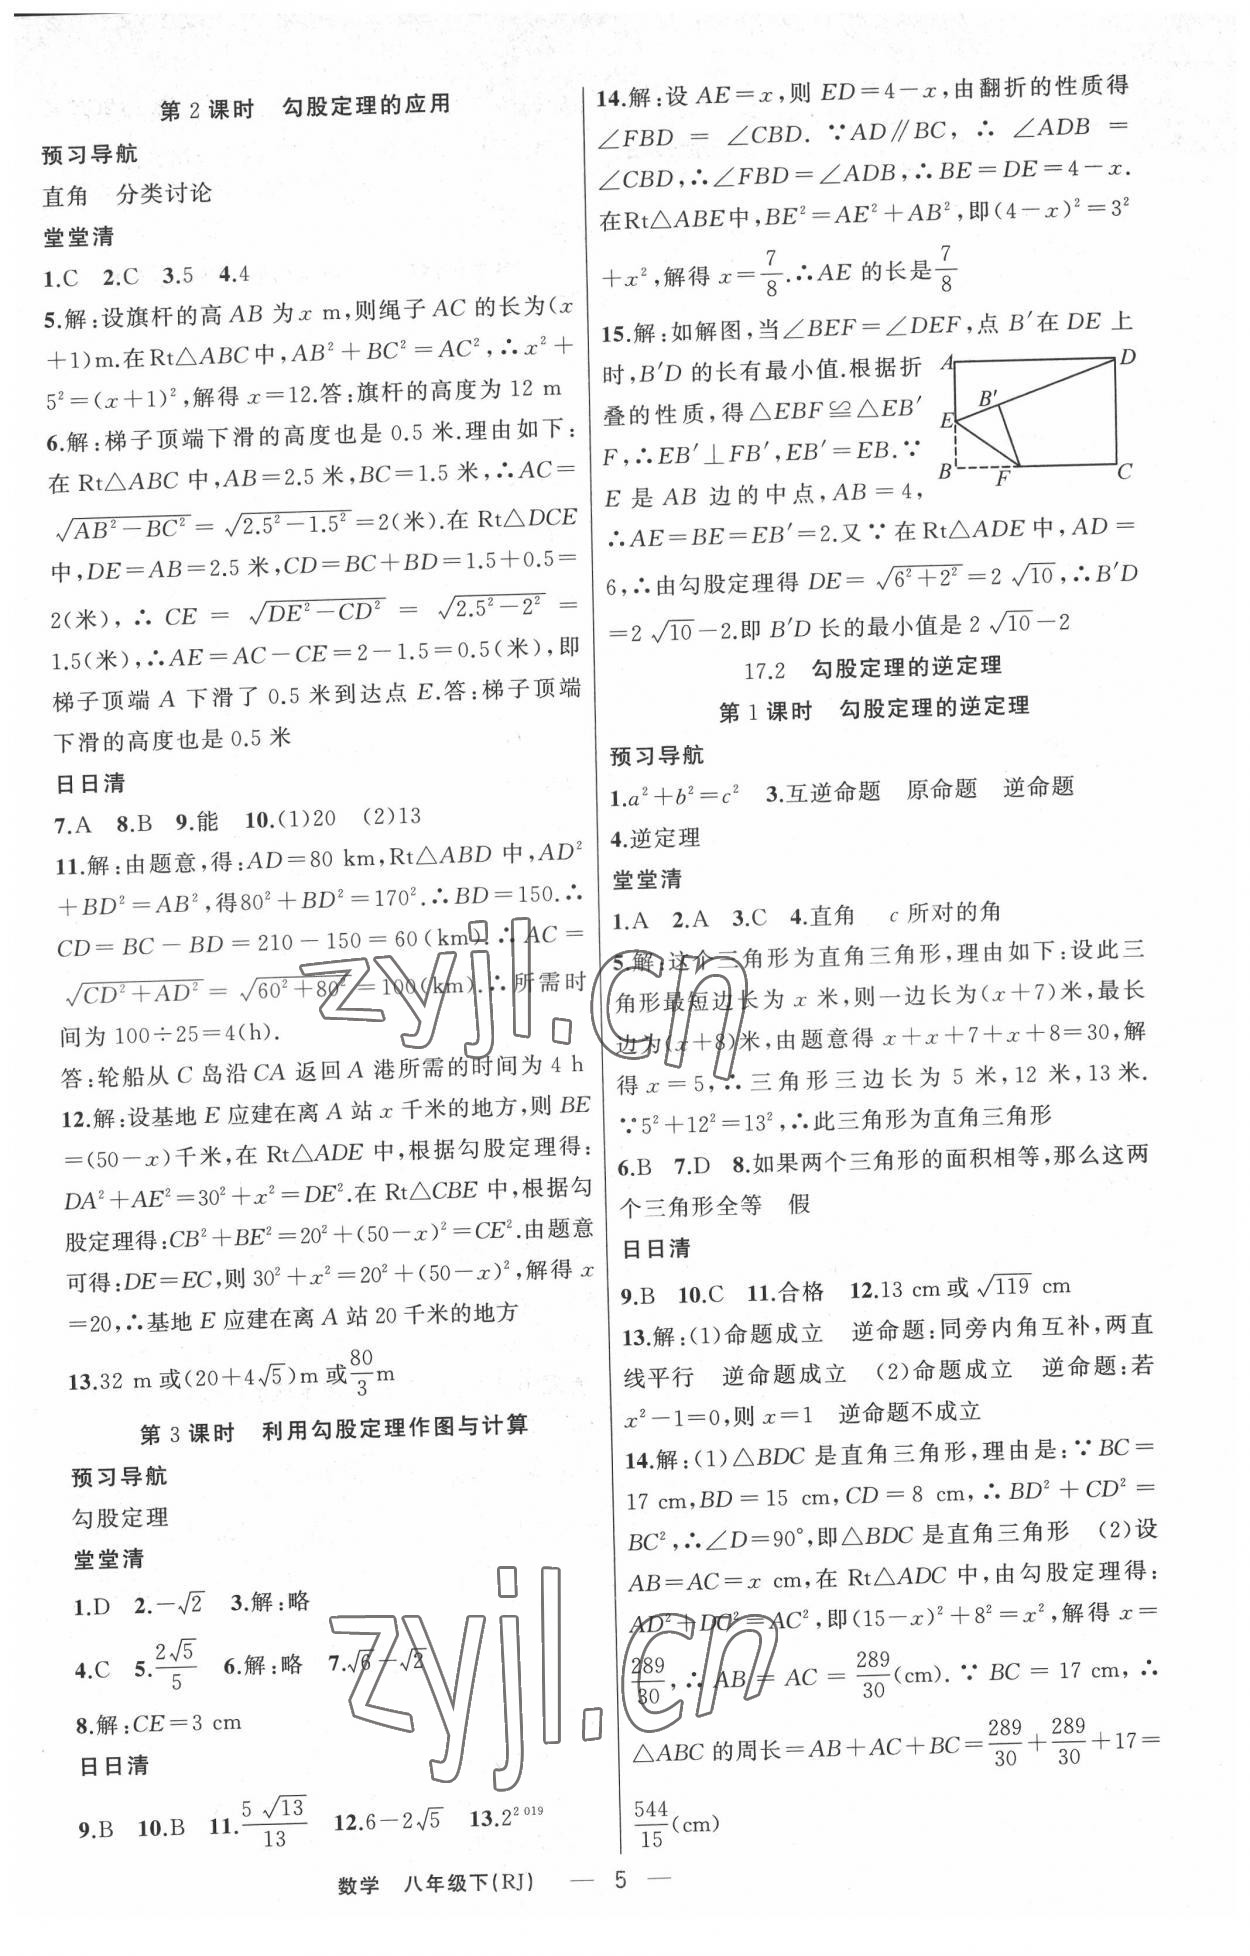 第2课时　勾股定理的应用
预习导航
直角　分类讨论
堂堂清
1.C　2.C　3.5　4.4
5.解:设旗杆的高AB为x m,则绳子AC的长为(x
+1)m.在Rt△ABC中,AB²+BC²=AC²,∴x²+
5²=(x+1)²,解得x=12.答:旗杆的高度为12 m
6.解:梯子顶端下滑的高度也是0.5米.理由如下:
在Rt△ABC中,AB=2.5米,BC=1.5米,∴AC=
√(AB²-BC²)=√(2.5²-1.5²)=2(米).在Rt△DCE
中,DE=AB=2.5米,CD=BC+BD=1.5+0.5=
2(米),∴CE=√(DE²-CD²)=√(2.5²-2²)=
1.5(米),∴AE=AC-CE=2-1.5=0.5(米),即
梯子顶端A下滑了0.5米到达点E.答:梯子顶端
下滑的高度也是0.5米
日日清
7.A　8.B　9.能　10.(1)20　(2)13
11.解:由题意,得:AD=80 km,Rt△ABD中,AD²
+BD²=AB²,得80²+BD²=170².∴BD=150.∴
CD=BC-BD=210-150=60(km).∴AC=
√(CD²+AD²)=√(60²+80²)=100(km).∴所需时
间为100÷25=4(h).
答:轮船从C岛沿CA返回A港所需的时间为4 h
12.解:设基地E应建在离A站x千米的地方,则BE
=(50-x)千米,在Rt△ADE中,根据勾股定理得:
DA²+AE²=30²+x²=DE².在Rt△CBE中,根据勾
股定理得:CB²+BE²=20²+(50-x)²=CE².由题意
可得:DE=EC,则30²+x²=20²+(50-x)²,解得x
=20,∴基地E应建在离A站20千米的地方
13.32 m或(20+4√5)m或80/3 m
第3课时　利用勾股定理作图与计算
预习导航
勾股定理
堂堂清
1.D　2.-√2　3.解:略
4.C　5.2√5/5　6.解:略　7.√6-√2
8.解:CE=3 cm
日日清
9.B　10.B　11.5√13/13　12.6-2√5　13.2^(2 019)
14.解:设AE=x,则ED=4-x,由翻折的性质得
∠FBD=∠CBD.∵AD∥BC,∴∠ADB=
∠CBD,∴∠FBD=∠ADB,∴BE=DE=4-x.
在Rt△ABE中,BE²=AE²+AB²,即(4-x)²=3²
+x²,解得x=7/8.∴AE的长是7/8
15.解:如解图,当∠BEF=∠DEF,点B′在DE上
时,B′D的长有最小值.根据折
叠的性质,得△EBF≌△EB′
F,∴EB′⊥FB′,EB′=EB.∵
E是AB边的中点,AB=4,
A
D
B′
E
B
F
C
∴AE=BE=EB′=2.又∵在Rt△ADE中,AD=
6,∴由勾股定理得DE=√(6²+2²)=2√10,∴B′D
=2√10-2.即B′D长的最小值是2√10-2
17.2　勾股定理的逆定理
第1课时　勾股定理的逆定理
预习导航
1.a²+b²=c²　3.互逆命题　原命题　逆命题
4.逆定理
堂堂清
1.A　2.A　3.C　4.直角　c所对的角
5.解:这个三角形为直角三角形,理由如下:设此三
角形最短边长为x米,则一边长为(x+7)米,最长
边为(x+8)米,由题意得x+x+7+x+8=30,解
得x=5,∴三角形三边长为5米,12米,13米.
∵5²+12²=13²,∴此三角形为直角三角形
6.B　7.D　8.如果两个三角形的面积相等,那么这两
个三角形全等　假
日日清
9.B　10.C　11.合格　12.13 cm或√119 cm
13.解:(1)命题成立　逆命题:同旁内角互补,两直
线平行　逆命题成立　(2)命题成立　逆命题:若
x²-1=0,则x=1　逆命题不成立
14.解:(1)△BDC是直角三角形,理由是:∵BC=
17 cm,BD=15 cm,CD=8 cm,∴BD²+CD²=
BC²,∴∠D=90°,即△BDC是直角三角形　(2)设
AB=AC=x cm,在Rt△ADC中,由勾股定理得:
AD²+DC²=AC²,即(15-x)²+8²=x²,解得x=
289/30,∴AB=AC=289/30(cm).∵BC=17 cm,∴
△ABC的周长=AB+AC+BC=289/30+289/30+17=
544/15(cm)
数学　八年级下(RJ)　— 5 —
zyjl.cn
zyjl.cn